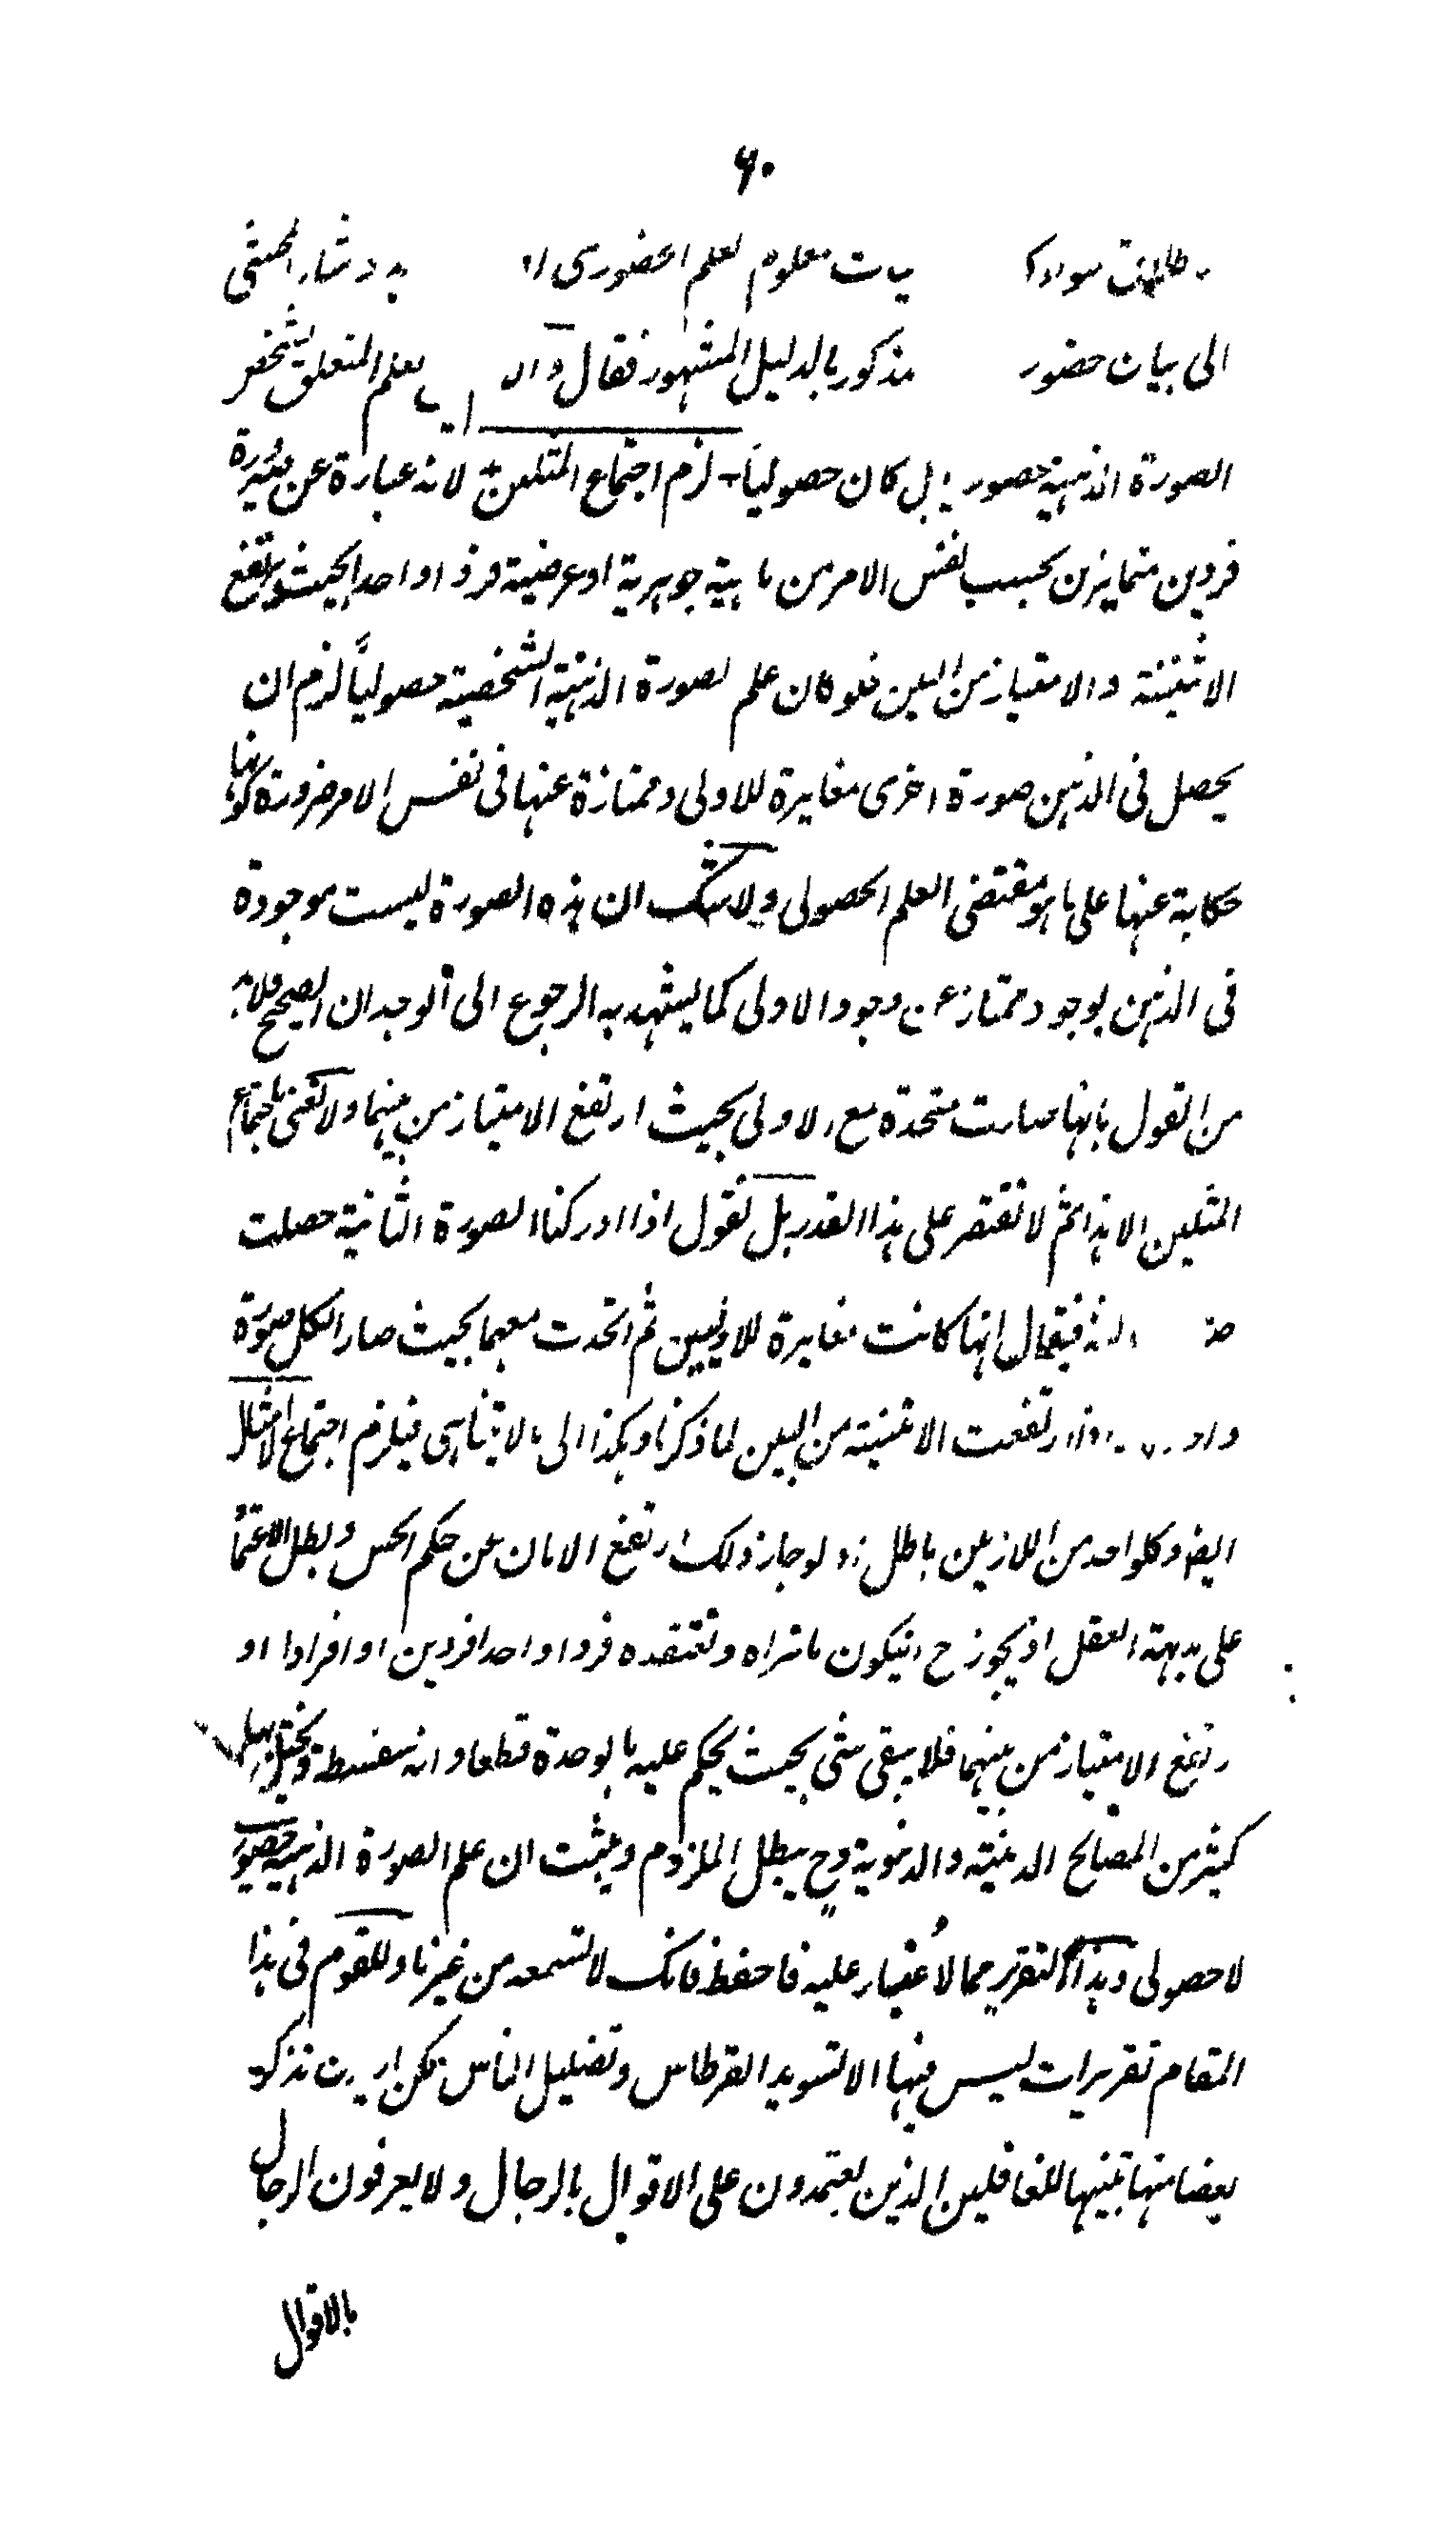 ۶۰
معلوم العلم الحضوري المحشي
الى بيان حضور مذكور بالدليل المشهور فقال و العلم المتعلق بتشخص
الصورة الذهنية حضوري بل كان حصوليا لزم اجتماع المثلين لانه عبارة عن صيرورة
فردين متمايزين بحسب نفس الامر من ماهية جوهرية او عرضية فردا واحدا بحيث يرتفع
الاثنينية والامتياز من البين فلو كان علم الصورة الذهنية الشخصية حصوليا لزم ان
يحصل فى الذهن صورة اخرى مغايرة للاولى وممتازة عنها فى نفس الامر ضرورة كونها
حكاية عنها على ما هو مقتضى العلم الحصولى ولا شك ان هذه الصورة ليست موجودة
فى الذهن بوجود ممتاز عن وجود الاولى كما يشهد به الرجوع الى الوجدان الصحيح فلا بد
من القول بانها صارت متحدة مع الاولى بحيث ارتفع الامتياز من بينهما ولا نعنى باجتماع
المثلين الا هذا ثم لا نقتصر على هذا القدر بل نقول اذا ادركنا الصورة الثانية حصلت
فيقال انها كانت مغايرة للاوليين ثم اتحدت معهما بحيث صار الكل صورة
ارتفعت الاثنينية من البين لما ذكرنا وهكذا الى ما لا يتناهى فيلزم اجتماع الامثال
ايضا وكلواحد من اللازمين باطل اذ لو جاز ذلك ارتفع الامان عن حكم الحس وبطل الاعتماد
على بديهة العقل اذ يجوز ح انيكون ما تراه وتعتقده فردا واحدا فردين او افرادا او
رتفع الامتياز من بينهما فلا يبقى شئ بحيث يحكم عليه بالوحدة قطعا وانه سفسطة ويختل بها
كثير من المصالح الدينية والدنوية وح يبطل الملزوم ويثبت ان علم الصورة الذهنية حضورى
لا حصولى وهذا التقرير مما لا غبار عليه فاحفظ فانك لا تسمعه من غيرنا وللقوم فى هذا
المقام تقريرات ليس فيها الا تسويد القرطاس وتضليل الناس لكن اريد ان نذكر
بعضا منها تنبيها للغافلين الذين يعتمدون على الاقوال بالرجال ولا يعرفون الرجال
بالاقوال